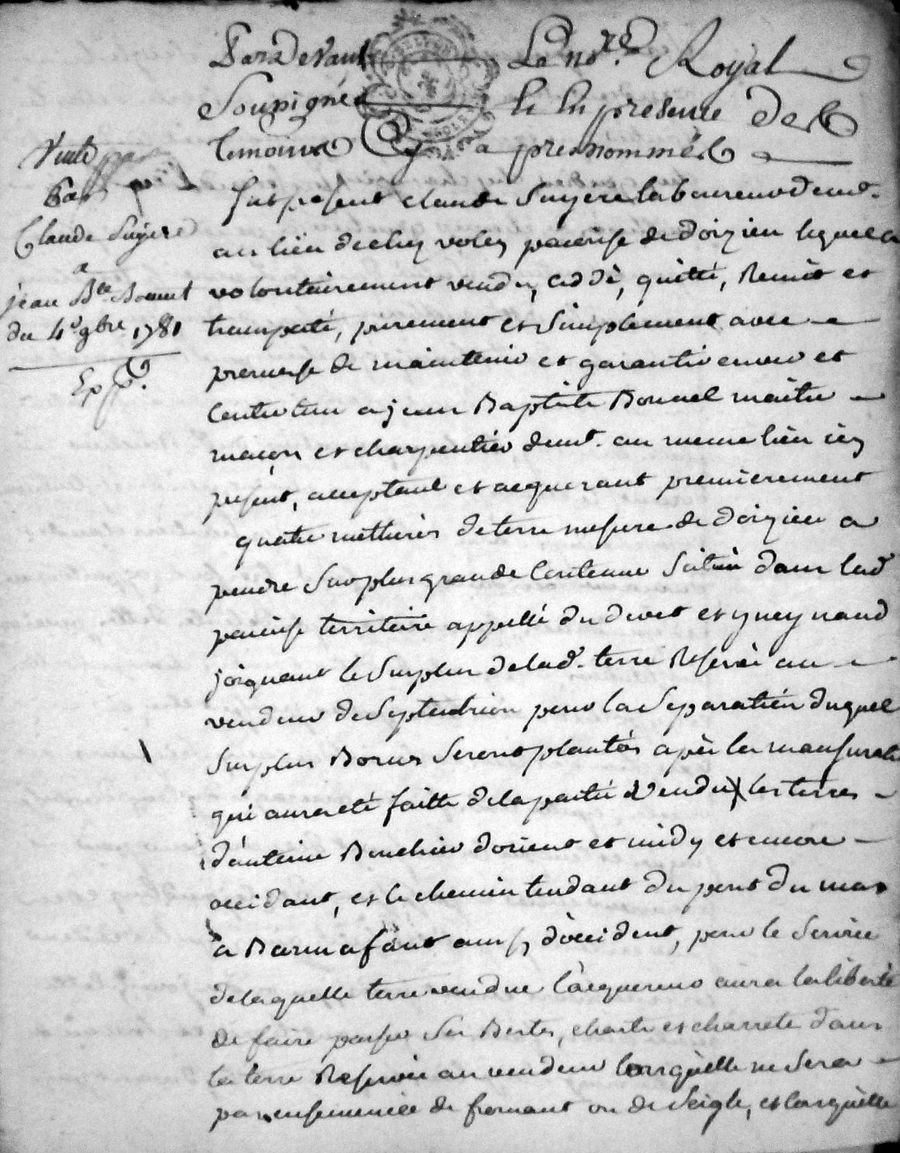 Pardevant Le no.re Royal
Soussigné & En presence des
temoins cy a pres nommés
Vente
Par
Claude Sujere
a
jean Bte Bonnel
du 4e 9bre 1781
Exp.
fut present claude Sujere laboureur demt.
au lieu de chez voley paroisse de doizieu lequel a
volontairement vendu, ceddé, quitté, Remis et
transporté, purement et Simplement avec
promesse de maintenir et garantir envers et
Contre tous a jean Baptiste Bonnel maitre
maçon et charpentier demt. au meme lieu icy
present, acceptant et acquerant premierement
quatre metherés de terre mesure de doizieu a
prendre Sur plus grande Contenue Scituée dans lad.
paroisse territoire appellé du divet et
joignant le Surplus de lad. terre Reservée au
vendeur de Septentrion pour la Separation duquel
Surplus Bornes Seront plantées après la mansuration
qui aura eté faitte de la partie Vendue les terres
d'antoine Bouchier d'orient et midy et encore
occident, et le chemin tendant du pont du mas
a Barmafont aussy d'occident, pour le Service
de laquelle terre vendue l'acquereur aura la liberté
de faire passer Ses Bestes, chars et charrete dans
la terre Reservée au vendeur lorsqu'elle ne Sera
pas ensemencée de froment ou de Seigle, et lorsqu'elle